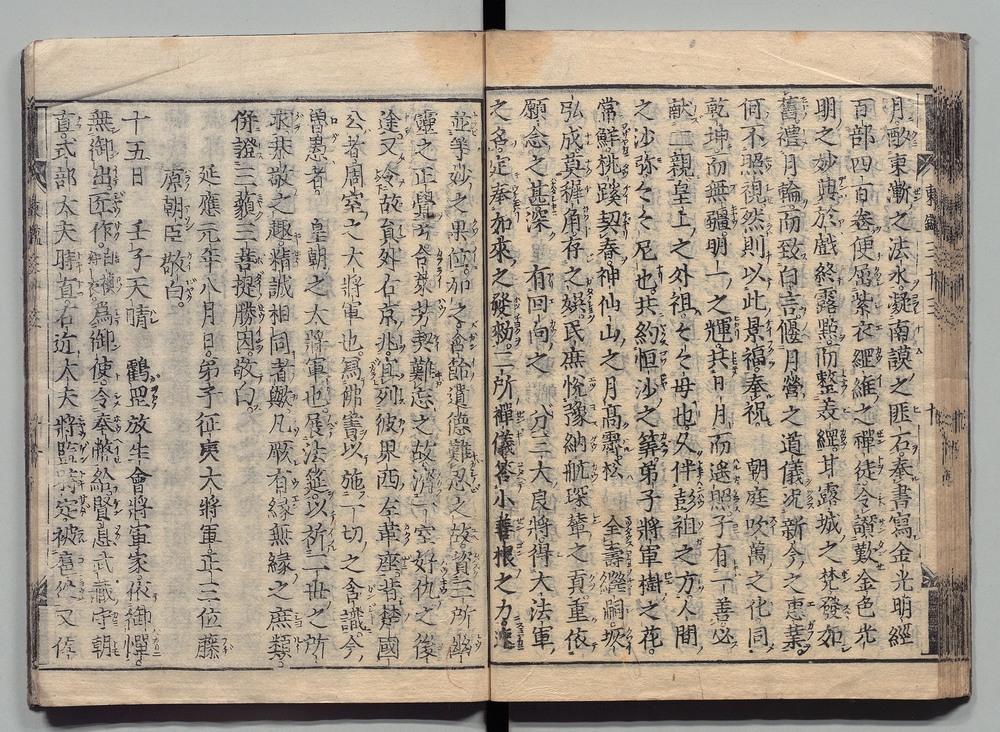 月酌東漸之法水凝南謨之匪石奉書寫金光明經
百部四百卷便屈紫衣經維之禪徒令讃歎金色光
明之妙典於戲終露點而整義經甘露城之梵發如
舊禮月輪而致白言偃月營之道儀况新今之惠業
何不照視然則以此景福奉祝 朝庭吹萬之化同
乾坤而無疆明一之輝共日月而遥照子有一善必
献二親皇上之外祖々々母也久伴彭祖之方人間
之沙弥々々尼也共約恒沙之筭弟子將軍樹之花
常鮮桃蹊契春神仙山之月髙霽松 全壽 嗣
弘成莫 角存之娯民庶悦豫納航琛輦之貢重依
願念之甚深 有回向之 分三大良將得大法軍
之名定奉加來之發 三所禪儀答小善根之力
並等妙之果位加之含飴遺德難忍之故資三所幽
靈之正覺 合 契難忘之故濟一室好仇之後
途又令故員外右京兆宜列彼界西至華座昔楚國
公者周室之大將軍也寫佛書以施一切之含識今
曽愚者 皇朝之大將軍也展法莚以祈二世之所
求恭敬之趣精誠相同者歟凡厥有縁無縁之庶類
併證三藐三菩提勝因敬白
延應元年八月日弟子征夷大將軍正二位藤
原朝臣敬白
十五日 壬子天晴 鶴罡放生會將軍家依御憚
無御出 作 爲御使令奉幣給賢息武藏守朝
直式部大夫時直右近大夫將監時定被着 又佐
東鑑三十三 十